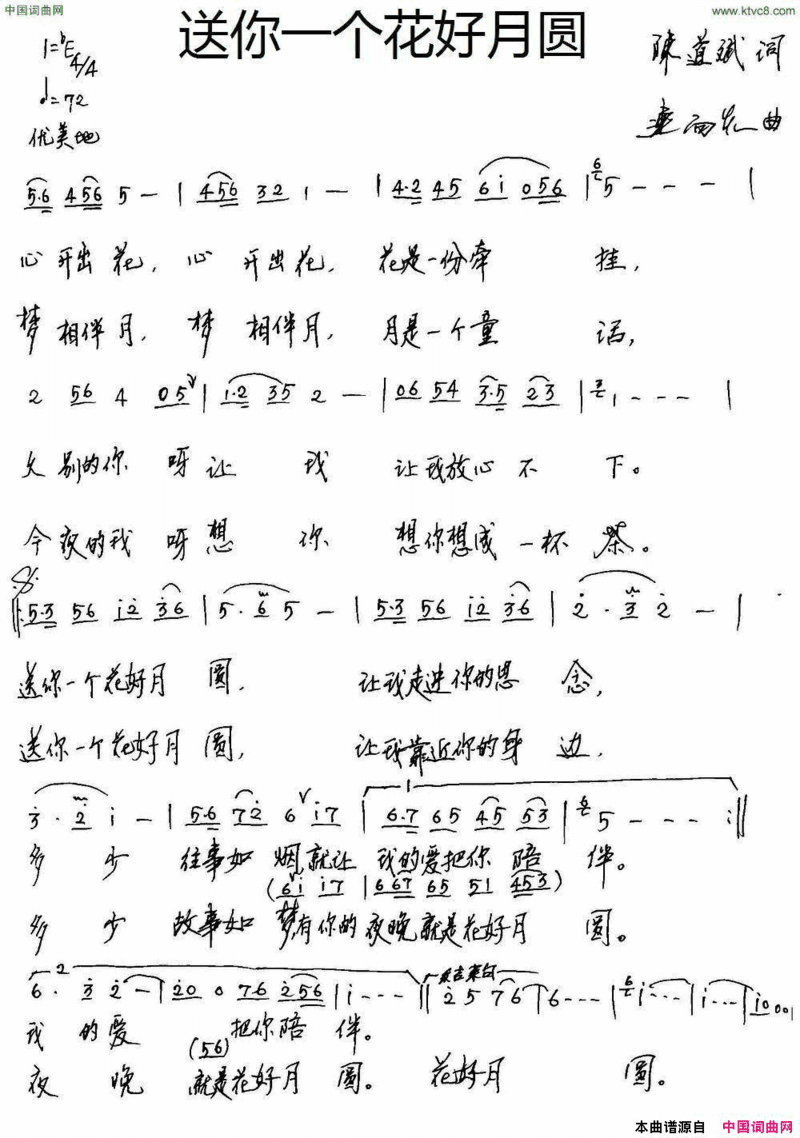 中国词曲网
www.ktvc8.com
送你一个花好月圆
1=ᵇE 4/4
♩=72
优美地
陈道斌 词
曲
5.6 456 5 — | 456 32 1 — | 4.2 45 6i 056 | 5 - - - |
心开出花，心开出花，花是一份牵挂，
梦相伴月，梦相伴月，月是一个童话，
2 56 4 05 | 1.2 35 2 — | 06 54 3.5 23 | 1 - - - |
久别的你呀让我让我放心不下。
今夜的我呀想你想你想成一杯茶。
5.3 56 i2 36 | 5. 6 5 — | 5.3 56 i2 36 | 2. 3 2 — |
送你一个花好月圆，让我走进你的思念，
送你一个花好月圆，让我靠近你的身边，
3. 2 i — | 5.6 72 6 i7 | 6.7 65 45 53 | 5 - - - :||
多少往事如烟就让我的爱把你陪伴。
(6i i7 | 667 65 51 453)
多少故事如梦有你的夜晚就是花好月圆。
2
6. 3 2 — | 20 0 76 256 | i - - - || 2 5 76 | 6 - - - | i - - - | i - - - | i000 ||
我的爱把你陪伴。
(56)
夜晚就是花好月圆。花好月圆。
本曲谱源自 中国词曲网